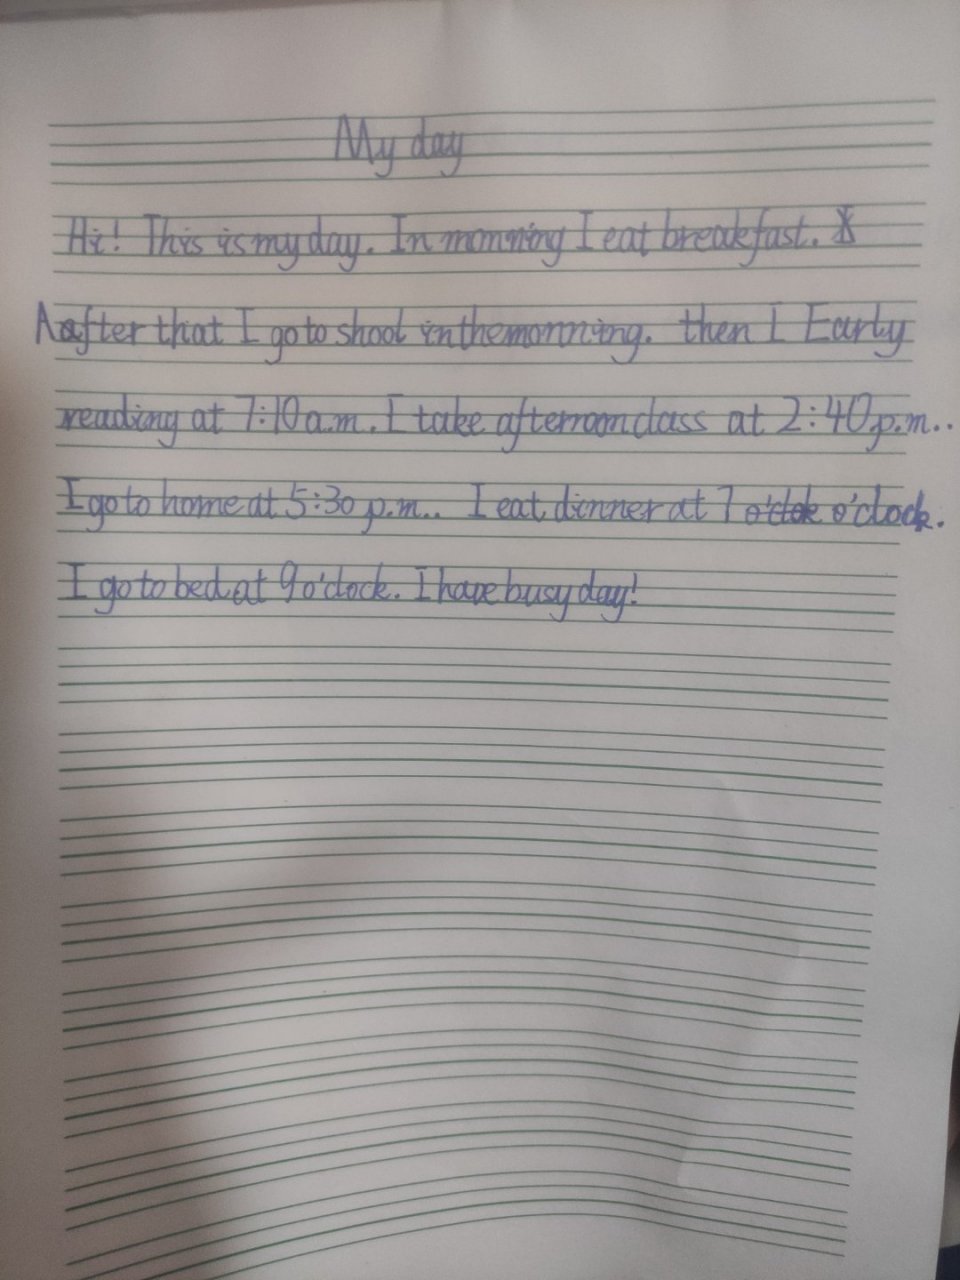 My day
Hi! This is my day. In monning I eat breakfast.
Aafter that I go to shool in the monning. then I Early
reading at 7:10 a.m. I take afterroom class at 2:40 p.m..
I go to home at 5:30 p.m.. I eat dinner at 7 o'clock.
I go to bed at 9 o'clock. I have busy day!